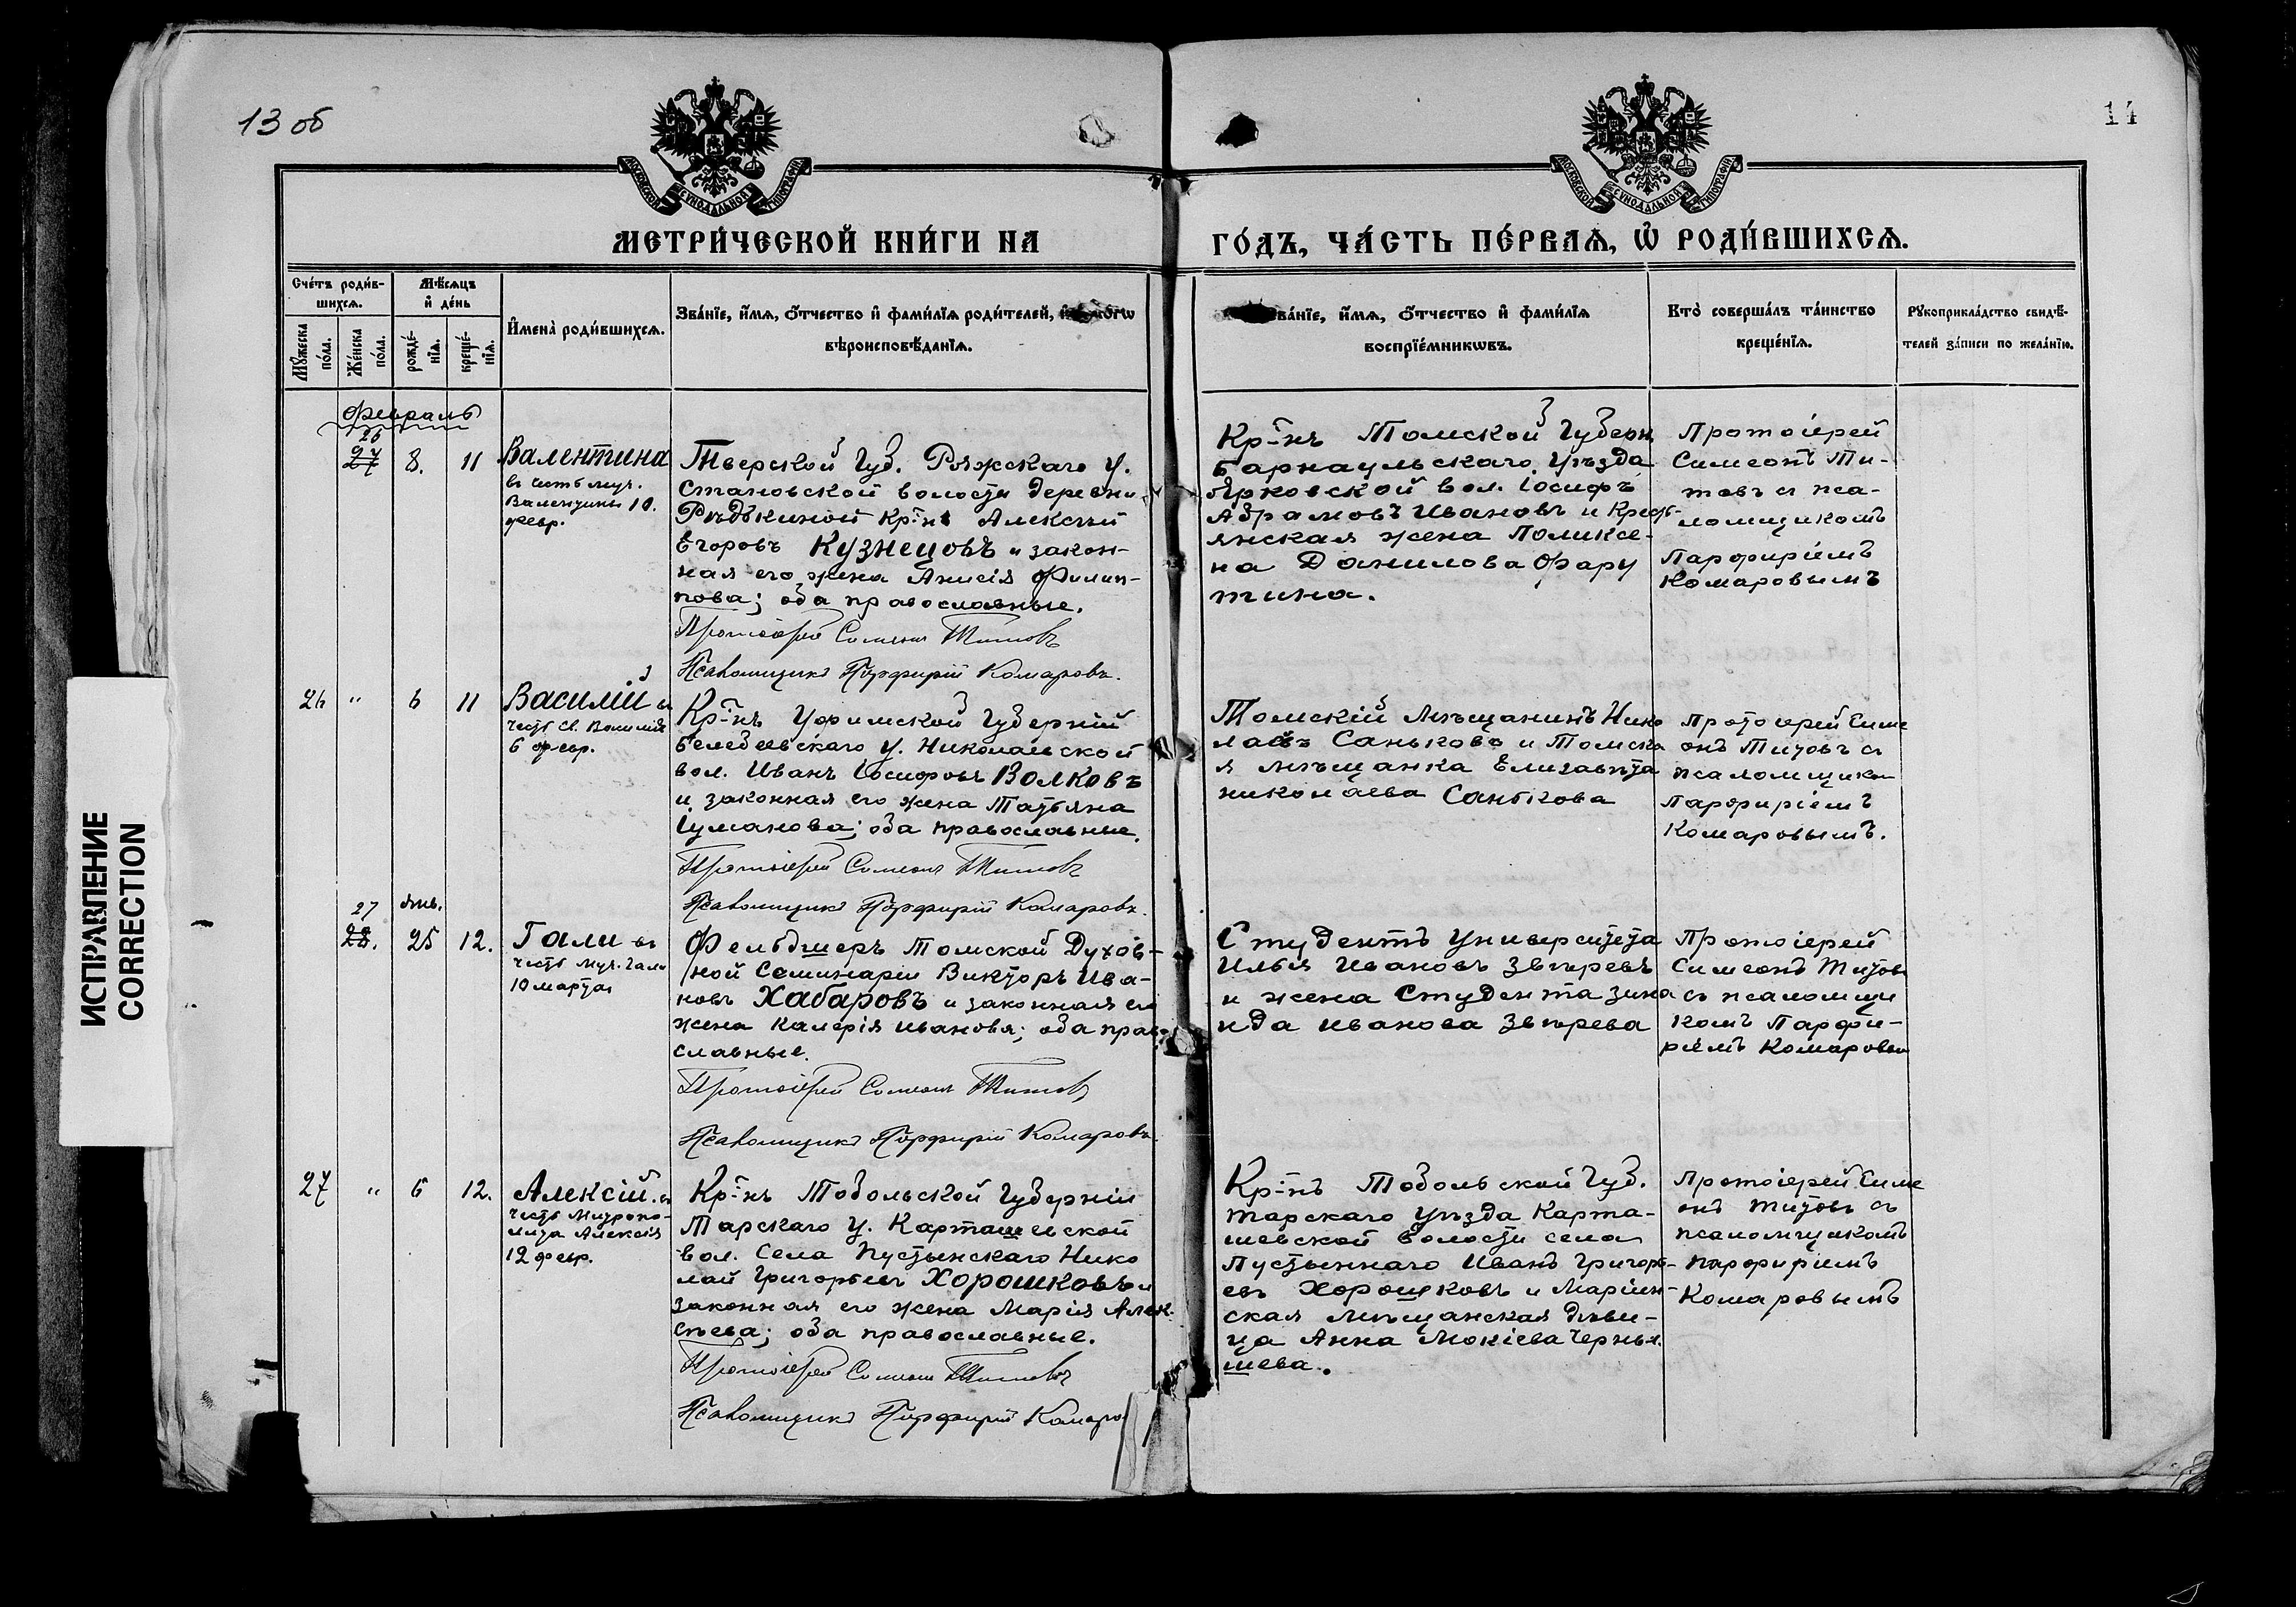 13 об
14
МОСКОВСКОЙ СѴНОДАЛЬНОЙ ТИПОГРАФІИ
МОСКОВСКОЙ СѴНОДАЛЬНОЙ ТИПОГРАФІИ
МЕТРИ́ЧЕСКОЙ КНИ́ГИ НА
ГО́ДЪ, ЧА́СТЬ ПЕ́РВАѦ, Ѡ҆ РОДИ́ВШИХСѦ.
Сче́тъ роди́в-
шихсѧ.
Мꙋ́жеска
по́ла.
Же́нска
по́ла.
Мѣ́сѧцъ
и҆ де́нь
рожде́-
нїѧ.
креще́-
нїѧ.
И҆мена̀ роди́вшихсѧ.
Зва́нїе, и҆́мѧ, ѻ҆́тчество и҆ фами́лїѧ роди́телей,
вѣроисповѣ́данїѧ.
ва́нїе, и҆́мѧ, ѻ҆́тчество и҆ фами́лїѧ
воспрїе́мникѡвъ.
Кто̀ соверша́лъ та́инство
креще́нїѧ.
Рꙋкоприкла́дство свидѣ́-
телей за́писи по жела́нїю.
Февраль
26
27
8.
11
Валентина
въ честь муч.
Валентины 10.
февр.
Тверской Губ. Ряжскаго у.
Становской волости деревни
Рѣдькиной Кр-нъ Алексѣй
Егоровъ Кузнецовъ и закон-
ная его жена Анисія Филип-
пова; оба православные.
Протоіерей Симеонъ Титовъ
Псаломщикъ Порфирій Комаровъ.
Кр-нъ Томской Губерн
Барнаульскаго уѣзда
Ярковской вол. Іосифъ
Абрамовъ Ивановъ и Крест-
янская жена Поликсе-
на Данилова Фару
тина.
Протоіерей
Симеонъ Ти-
товъ съ пса-
ломщикомъ
Парфиріемъ
Комаровымъ
26
"
6
11
Василій въ
честь Св. Василія
6 февр.
Кр-нъ Уфимской Губерніи
Беледеевскаго у. Николаевской
вол. Иванъ Іосифовъ Волковъ
и законная его жена Татьяна
оба православные.
Протоіерей Симеонъ Титовъ
Псаломщикъ Порфирій Комаровъ.
Томскій мѣщанинъ Нико
лаевъ Саньковъ и Томска
я мѣщанка Елизавета
Николаева Санькова
Протоіерей Симе
онъ Титовъ съ
псаломщико
Парфиріемъ
Комаровымъ.
27
28.
Янв.
25
12.
Гали въ
честь муч. Гали
10 марта
Фельдшеръ Томской Духов-
ной Семинаріи Викторъ Ива-
новъ Хабаровъ и законная его
жена Калерія Иванова; оба право
славные.
Протоіерей Симеонъ Титовъ
Псаломщикъ Порфирій Комаровъ.
Студентъ Университета
Илья Ивановъ Звѣревъ
и жена Студента Зина
ида Иванова Звѣрева
Протоіерей
Симеонъ Титовъ
съ псаломщи
комъ Парфи-
ріемъ Комаровы
27
"
6
12.
Алексій въ
честь Митропо-
лита Алексія
12 февр.
Кр-нъ Тобольской Губерніи
Тарскаго у. Карташевской
вол. Села Пустынскаго Нико
лай Григорьевъ Хорошковъ и
законная его жена Марія Алек-
сѣева; оба православные.
Протоіерей Симеонъ Титовъ
Псаломщикъ Порфирій Комаро
Кр-нъ Тобольской Губ.
Тарскаго уѣзда Карта-
шевской волости села
Пустыннаго Иванъ Григорь-
евъ Хорошковъ и Маріин-
ская мѣщанская дѣви-
ца Анна Мокіева Черны-
шева.
Протоіерей Симе
онъ Титовъ съ
псаломщикомъ
Парфиріемъ
Комаровымъ
ИСПРАВЛЕНИЕ
CORRECTION